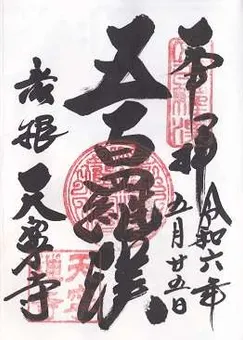 奉拝
令和六年
五月廿五日
五百羅漢
彦根
天寧寺